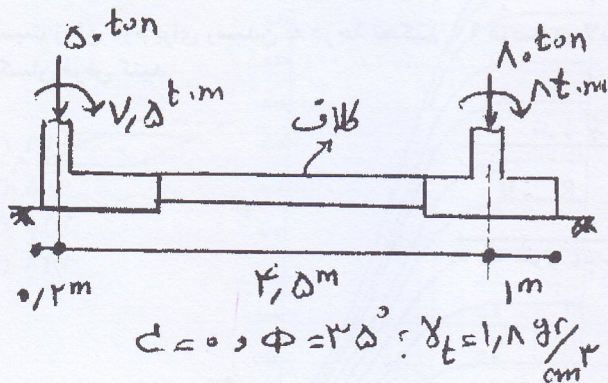 ۵۰ ton
۷,۵ t.m
۸۰ ton
۸ t.m
کلاف
۰,۲ m
۴,۵ m
۱ m
c = ۰ , Φ = ۳۵° : γt = ۱,۸ gr/cm۳